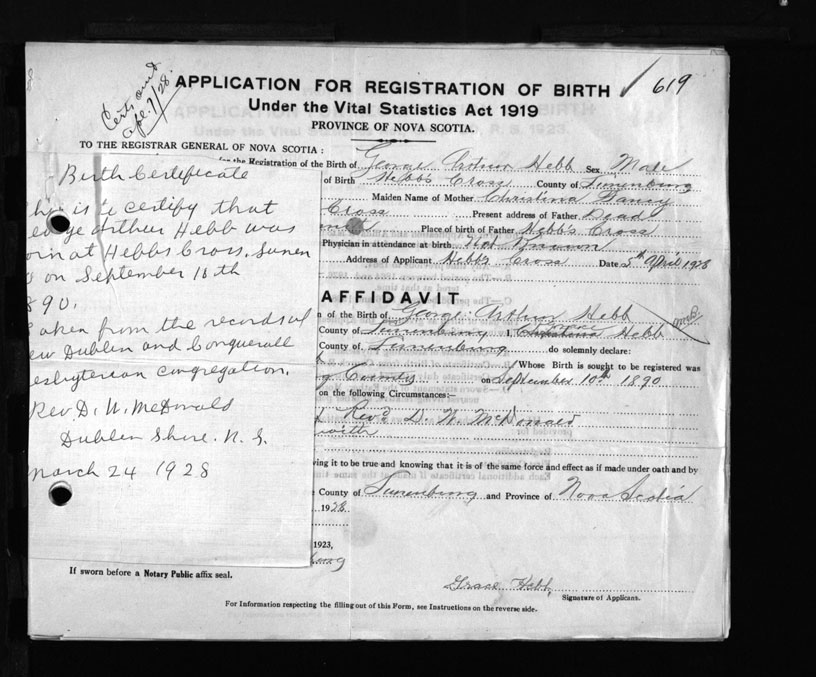 619
Certs and
Apl. 7/28.
APPLICATION FOR REGISTRATION OF BIRTH
Under the Vital Statistics Act 1919
PROVINCE OF NOVA SCOTIA.
TO THE REGISTRAR GENERAL OF NOVA SCOTIA :
for the Registration of the Birth of George Arthur Hebb Sex Male
of Birth Hebb's Cross County of Lunenburg
Maiden Name of Mother Christina
Cross Present address of Father Dead
Place of birth of Father Hebb's Cross
Physician in attendance at birth Not Known
Address of Applicant Hebb's Cross Date 5th April 1928
Birth Certificate
is to certify that
Arthur Hebb was
at Hebbs Cross, Lunen
on September 10th
890.
aken from the records of
ew Dublin and Conquerall
esbyterian congregation.
Rev. D. W. McDonald
Dublin Shore. N. S.
March 24 1928
AFFIDAVIT
n of the Birth of George Arthur Hebb
County of Lunenburg I, Hebb
County of Lunenburg do solemnly declare:
Whose Birth is sought to be registered was
g County on September 10th 1890
on the following Circumstances:—
Rev'd D. W. McDonald
with
ving it to be true and knowing that it is of the same force and effect as if made under oath and by
County of Lunenburg and Province of Nova Scotia
1928
1923,
If sworn before a Notary Public affix seal.
Grace Hebb
Signature of Applicant.
For Information respecting the filling out of this Form, see Instructions on the reverse side.